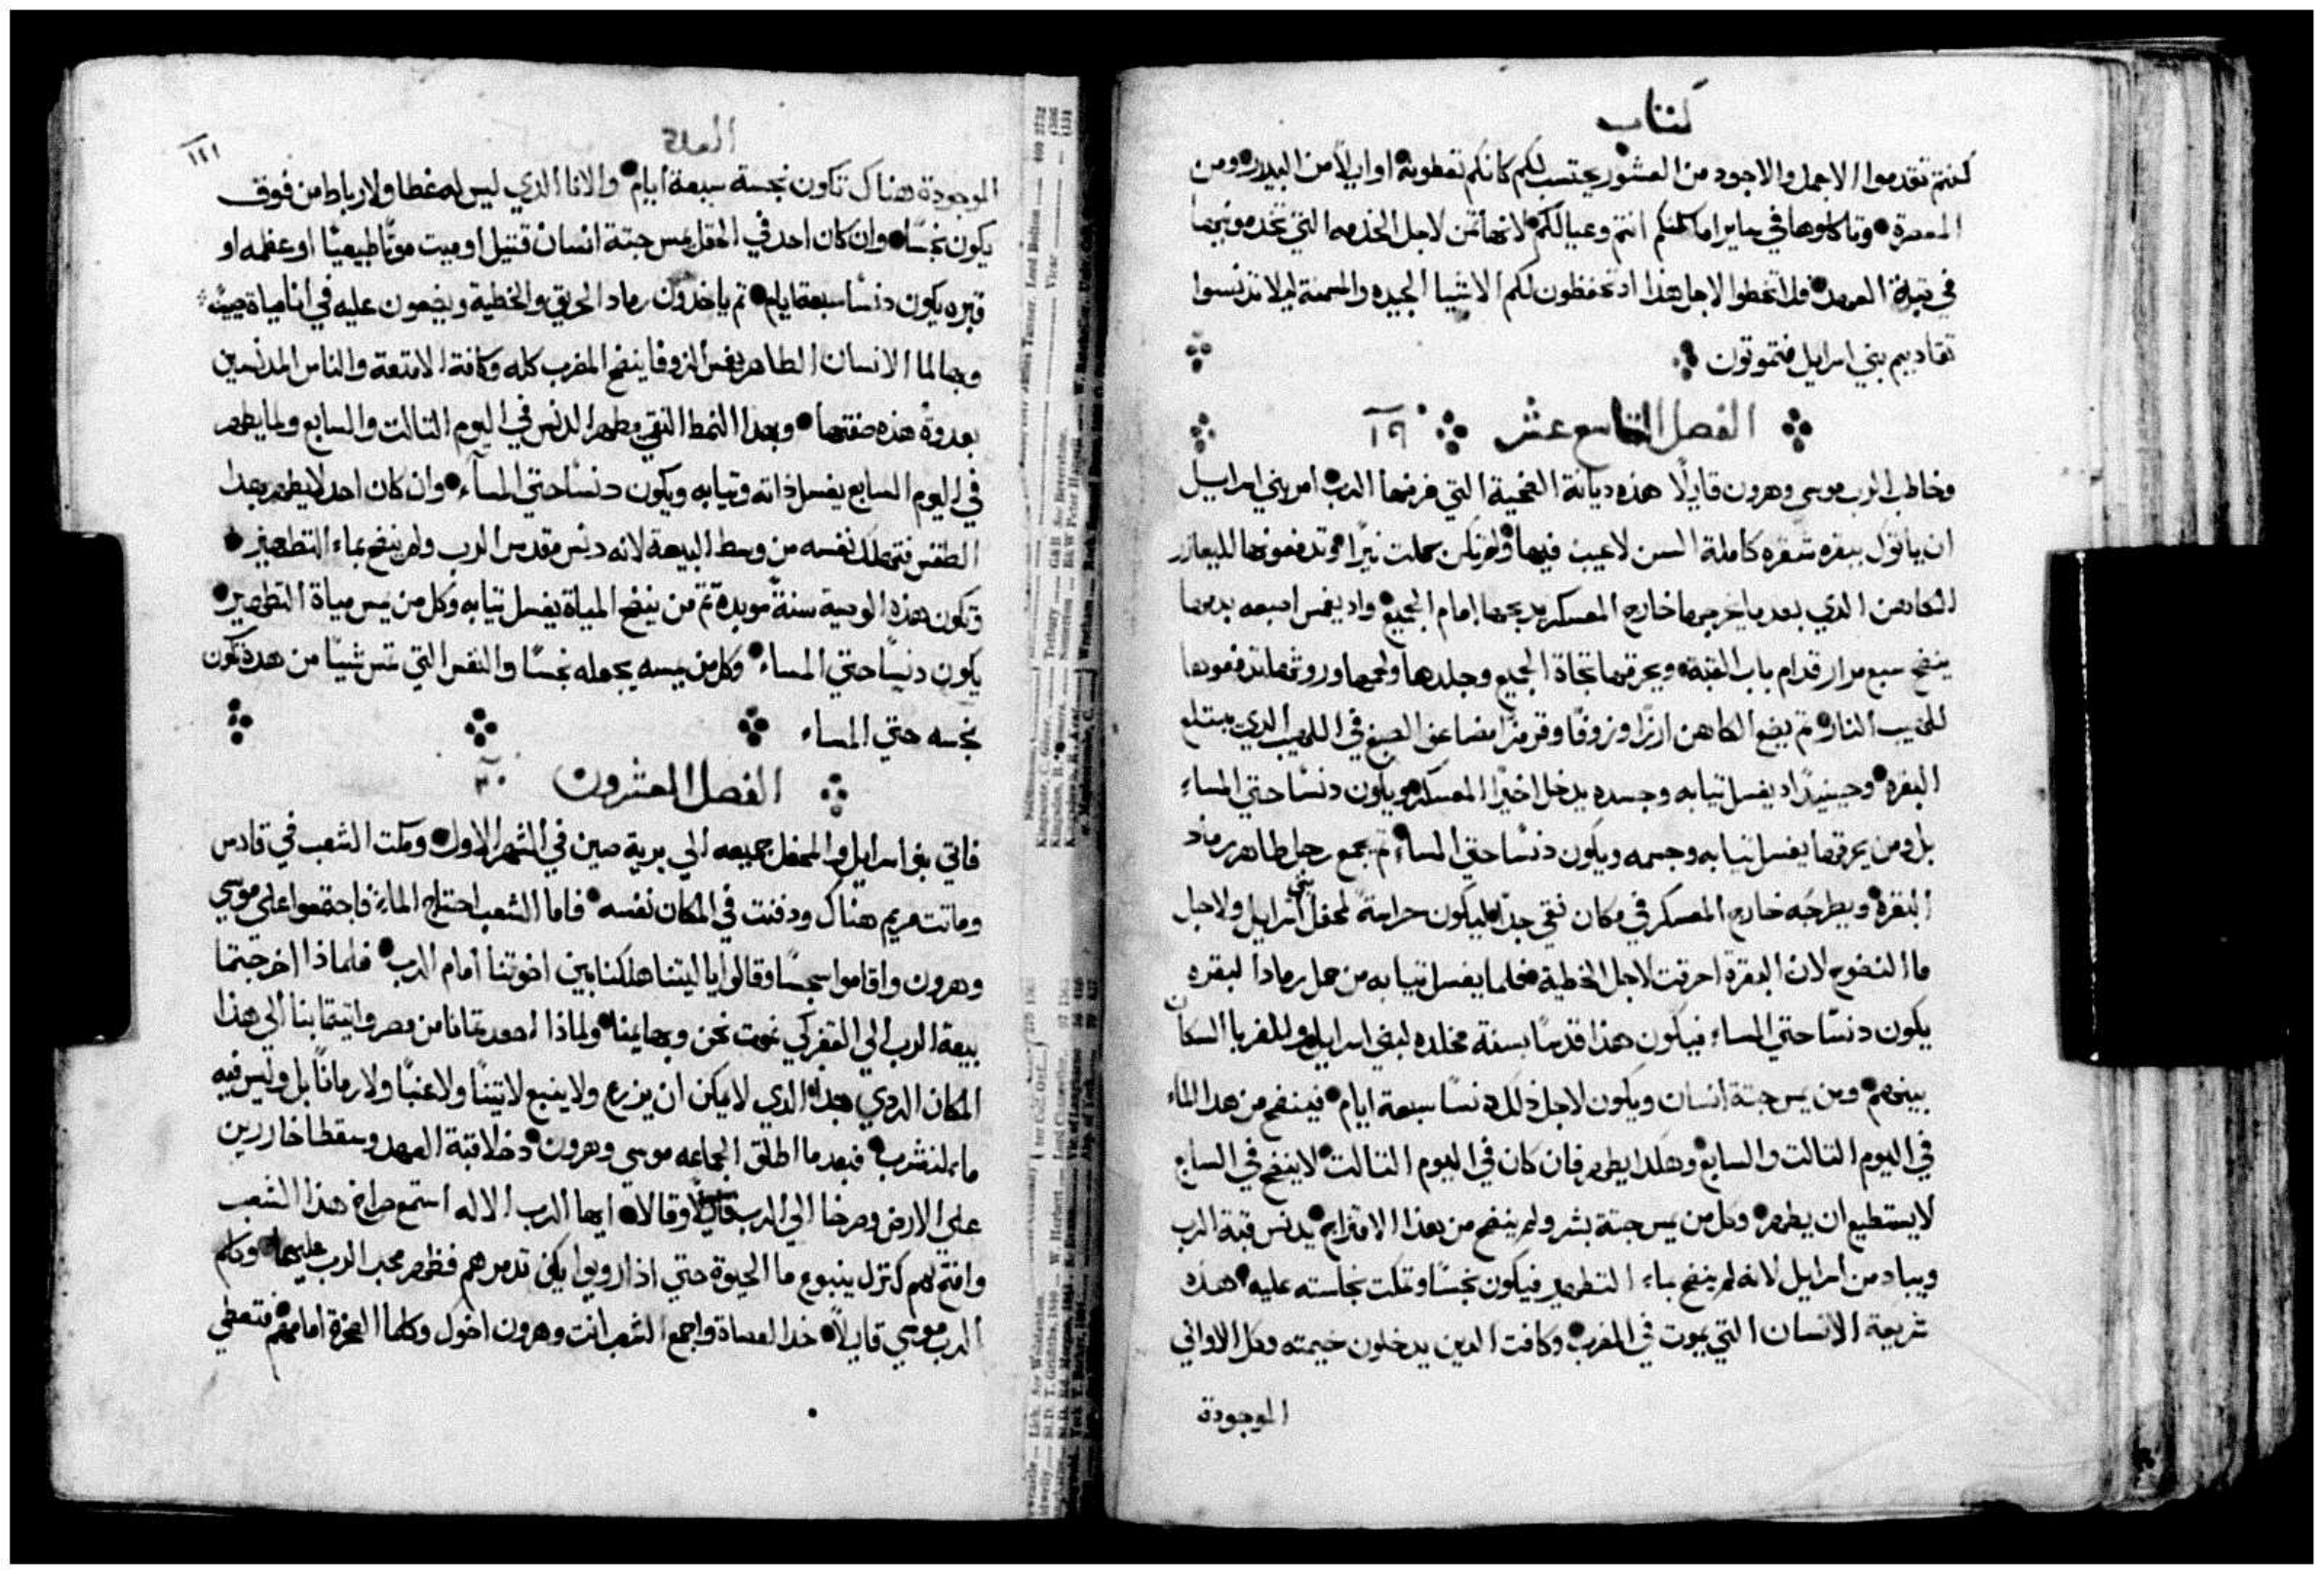 كتاب
كنتم تقدموا الاجمل والاجود من العشور يحتسب لكم كانكم تعطونه اوايلاً من البيدر ومن
المعصرة وتاكلوها في ساير اماكنكم انتم وعيالكم لانها ثمن لاجل الخدمه التي تخدمونها
في قبة العهد فلا تخطوا لاجل هذا اد تحفظون لكم الاشيا الجيده والسمنة ليلا تدنسوا
تقاديم بني اسرايل فتموتون
الفصل التاسع عشر ١٩
وخاطب الرب موسى وهرون قايلاً هذه ديانة الضحية التي فرضها الرب امر بني اسراييل
ان ياتوك ببقره شقره كاملة السن لاعيب فيها ولم تكن حملت نيرًا وتدفعونها لليعازر
الكاهن الذي بعد ما اخرجها خارج المعسكر يدبحها امام الجميع واد يغمس اصبعه بدمها
ينضح سبع مرار قدام باب القبة ويحرقها تجاة الجميع وجلدها ولحمها وروثها تدفعونها
للهيب النار ثم يضع الكاهن ارزًا وزوفًا وقرمزًا مضاعف الصبغ في اللهيب الدي يبتلع
البقره وحينيدًا اد يغسل تيابه وجسده يدخل اخيرًا المعسكر ويكون دنسًا حتي المساء
بل ومن يحرقها يغسل تيابه وجسمه ويكون دنسًا حتي المساء تم يجمع رجل طاهر رماد
البقرة ويطرحه خارج المعسكر في مكان نقي جدًا ليكون حراسةً لمحفل بني اسرايل ولاجل
ما النضوح لان البقرة احرقت لاجل الخطية فحلما يغسل تيابه من حمل رماد البقره
يكون دنسًا حتي المساء فيكون هذا قدسًا بسنة مخلده لبني اسرايل وللغربا السكان
بينهم ومن يمس جتة انسان ويكون لاجل ذلك دنسًا سبعة ايام فينضح من هدا الماء
في اليوم التالت والسابع وهكدا يطهر فان كان في اليوم التالت لاينضح في السابع
لايستطيع ان يطهر وكل من يمس جتة بشر ولم ينضح من بهذا الامتزاج يدنس قبة الرب
ويباد من اسرايل لانه لم ينضح بماء التطهير فيكون نجسًا وتمكت نجاسته عليه هذه
شريعة الانسان التي يموت في المضرب وكافت الدين يدخلون خيمته وكل الاواني
الموجودة
العدد
١٤١
الموجودة هناك تكون نجسة سبعة ايام والانا الذي ليس له غطا ولا رباط من فوق
يكون نجسًا وان كان احد في الحقل يمس جتة انسان قتيل او ميت موتًا طبيعيًا او عظمه او
قبره يكون دنسًا سبعة ايام تم ياخدون رماد الحريق والخطية ويضعون عليه في انا مياة حيه
وبها لما الانسان الطاهر يغمس الزوفا ينضح المضرب كله وكافة الامتعة والناس المدنسين
بعدوةٍ هذه صفتها وبهدا النمط النقي يطهر الدنس في اليوم التالت والسابع ولما يطهر
في اليوم السابع يغسل ذاته وتيابه ويكون دنسًا حتي المساء وان كان احد لايطهر بهدا
الطقس فتهلك نفسه من وسط البيعة لانه دنس مقدس الرب ولم ينضح بماء التطهير
وتكون هذه الوصية سنةً موبدة تم من ينضح المياة يغسل تيابه وكل من يمس مياة التطهير
يكون دنسًا حتي المساء وكل من يمسه يجعله نجسًا والنفس التي تمس شيئًا من هده تكون
نجسه حتي المساء
الفصل العشرون ٢٠
فاتي بنو اسرايل والمحفل جميعه الي برية صين في الشهر الاول ومكت الشعب في قادس
وماتت مريم هناك ودفنت في المكان نفسه فاما الشعب احتاج الماء فاجتمعوا على موسي
وهرون واقاموا سجسًا وقالوا ياليتنا هلكنا بين اخوتنا امام الرب فلماذا اخرجتما
بيعة الرب الي القفر كي نموت نحن وبهايمنا ولماذا اصعدتمانا من مصر واتيتما بنا الي هذا
المكان الردي جدًا الدي لايمكن ان يزرع ولاينبع لاتينًا ولاعنبًا ولارمانًا بل وليس فيه
ماء لنشرب فبعد ما اطلق الجماعه موسي وهرون دخلا قبة العهد وسقطا خاررين
علي الارض وصرخا الي الرب وقالا ايها الرب الاله استمع صراخ هذا الشعب
وافتح لهم كنزك ينبوع ما الحيوة حتي اذا رويوا يكف تدمرهم فظهر مجد الرب عليهما وكلم
الرب موسي قايلاً خد العصاة واجمع الشعب انت وهرون اخوك وكلما الصخرة امامهم فتعطي